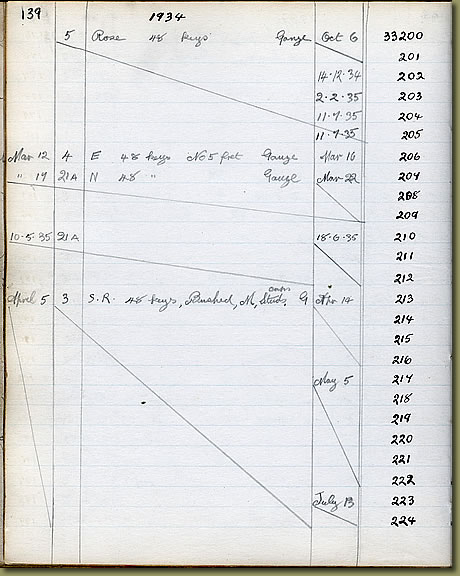 139 1934
5 Rose 48 keys Gauze Oct 6 33200
201
14-12-34 202
2-2-35 203
11-7-35 204
11-7-35 205
Mar 12 4 E 48 keys No 5 fret Gauze Mar 16 206
" 19 21A N 48 " Gauze Mar 22 207
208
209
10-5-35 21A 18-6-35 210
211
212
April 5 3 S.R. 48 keys, Bushed, M, Studs, G Apr 14 213
214
215
216
May 5 217
218
219
220
221
222
July 13 223
224